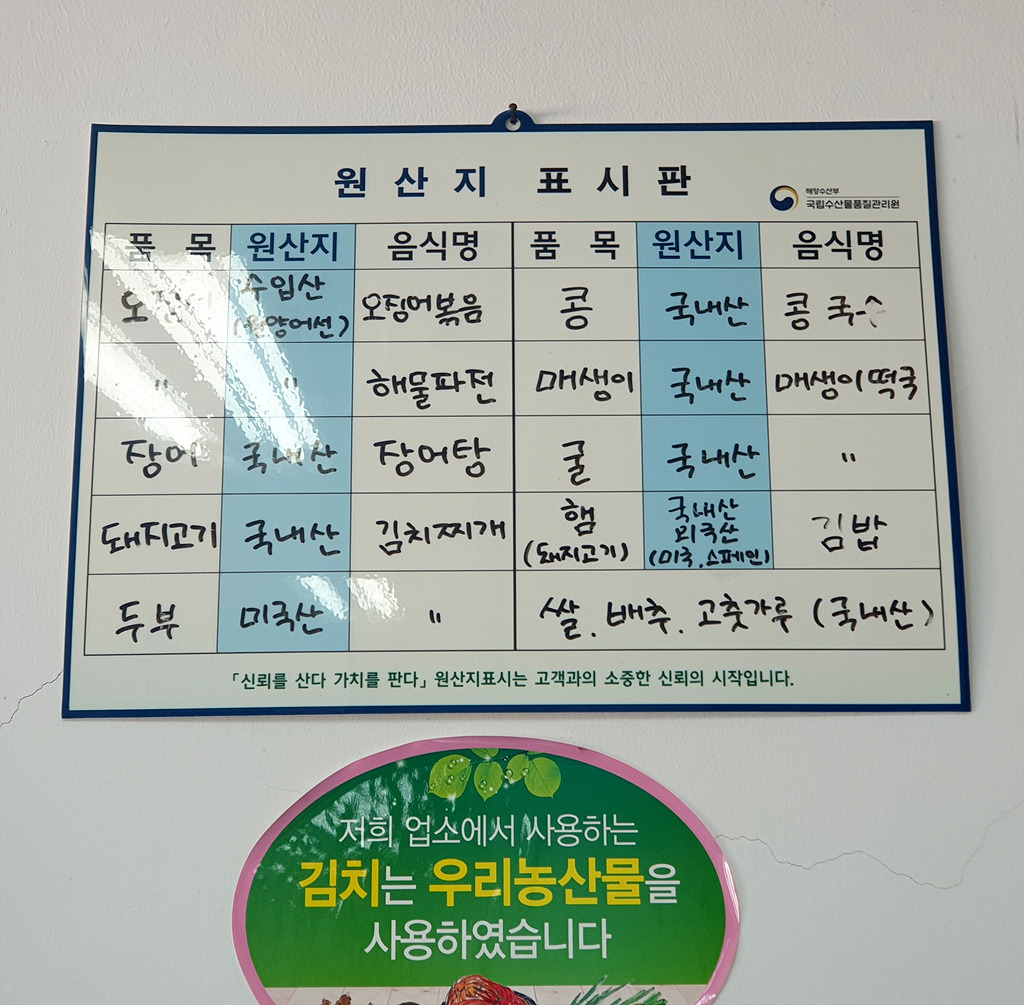 원산지 표시판
해양수산부
국립수산물품질관리원
품목 원산지 음식명 품목 원산지 음식명
오징어 수입산 오징어볶음 콩 국내산 콩국수
(원양어선)
〃 〃 해물파전 매생이 국내산 매생이떡국
장어 국내산 장어탕 굴 국내산 〃
돼지고기 국내산 김치찌개 햄 국내산 김밥
(돼지고기) 외국산
(미국, 스페인)
두부 미국산 〃 쌀. 배추. 고춧가루 (국내산)
「신뢰를 산다 가치를 판다」 원산지표시는 고객과의 소중한 신뢰의 시작입니다.
저희 업소에서 사용하는
김치는 우리농산물을
사용하였습니다